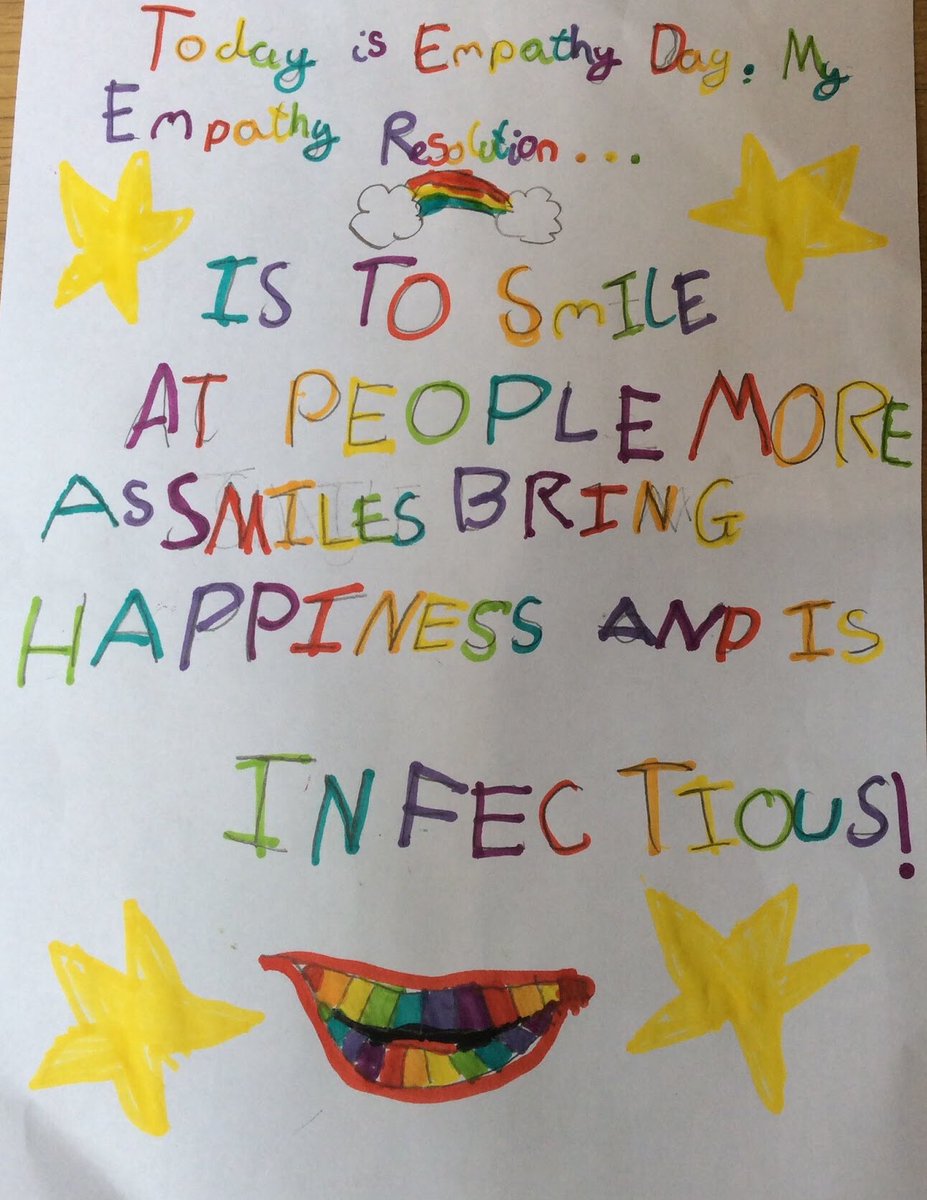 Today is Empathy Day. My
Empathy Resolution...
IS TO SmILE
AT PEOPLE MORE
AS SMILES BRING
HAPPINESS AND IS
INFECTIOUS!